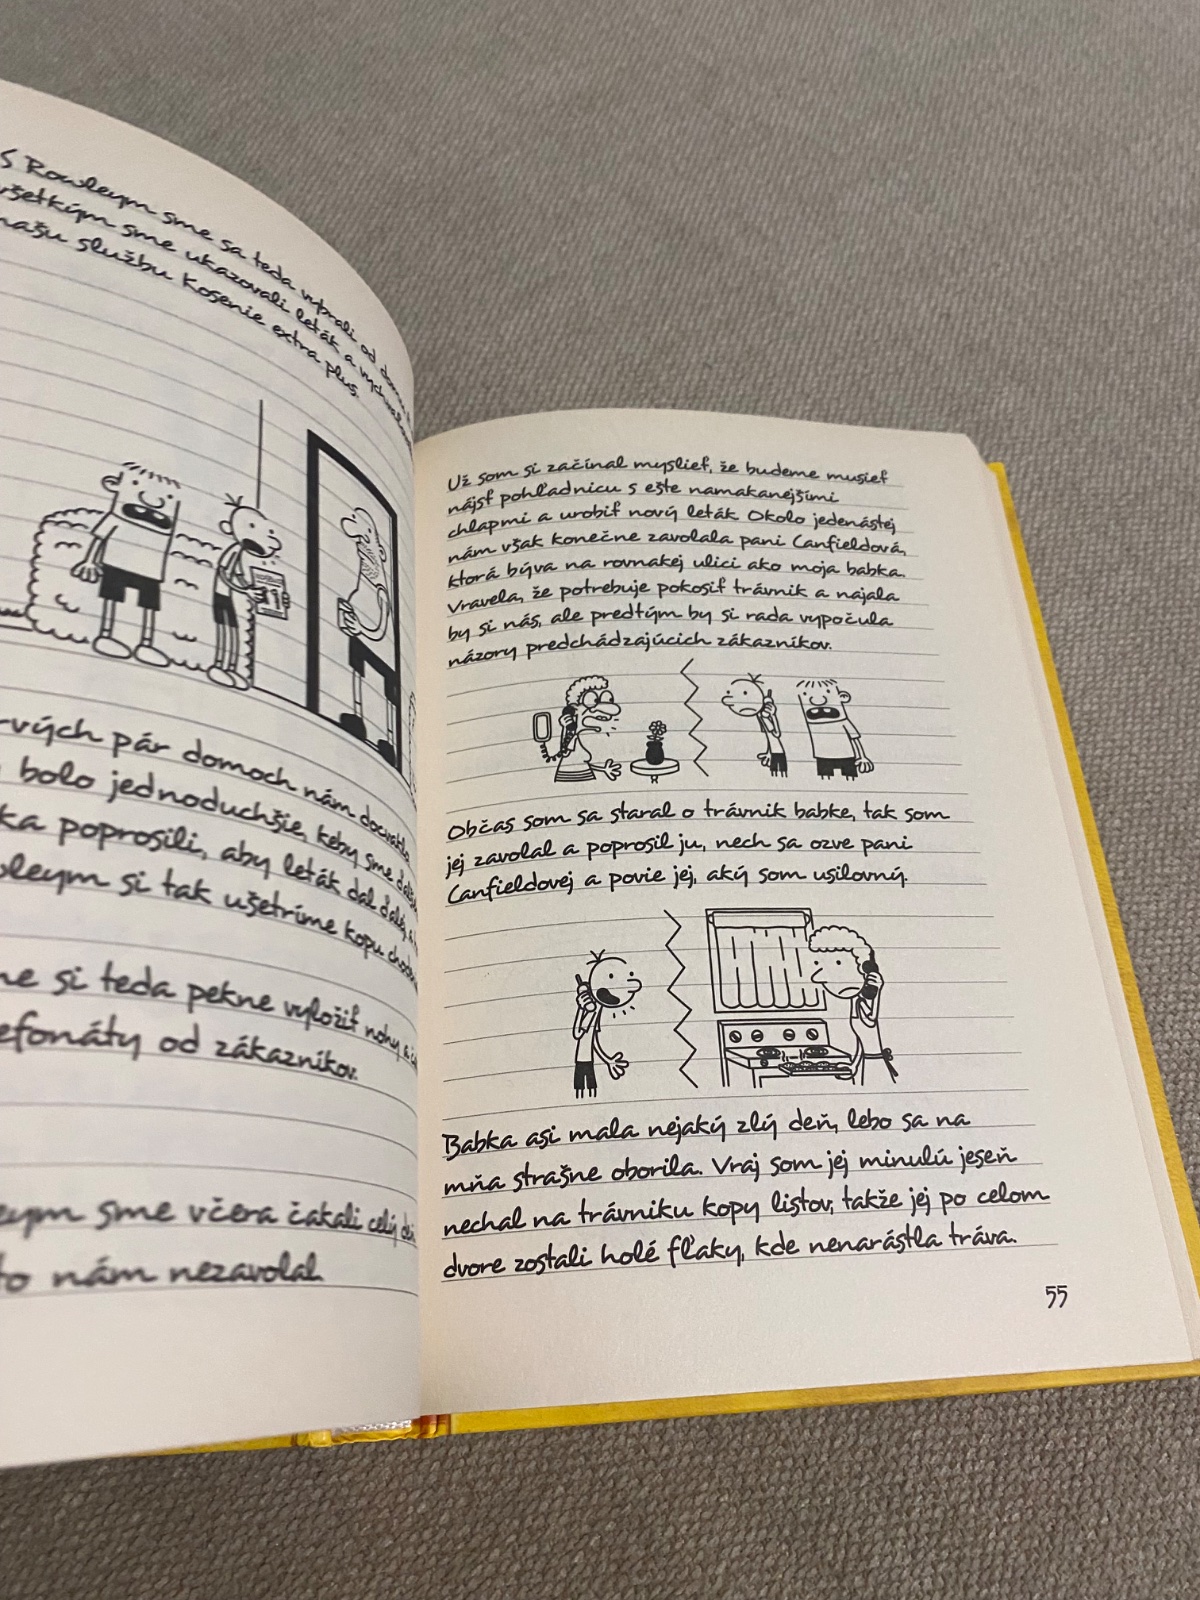 S Rowleym sme sa teda vybrali od domu
všetkým sme ukazovali leták a
našu službu Kosenie extra plus.
pár domoch nám
bolo jednoduchšie, keby sme
poprosili, aby leták dal ďalej a
si tak ušetríme kopu
si teda pekne vyložiť nohy a
od zákazníkov.
sme včera čakali celý
nám nezavolal.
Už som si začínal myslieť, že budeme musieť
nájsť pohľadnicu s ešte namakanejšími
chlapmi a urobiť nový leták. Okolo jedenástej
nám však konečne zavolala pani Canfieldová,
ktorá býva na rovnakej ulici ako moja babka.
Vravela, že potrebuje pokosiť trávnik a najala
by si nás, ale predtým by si rada vypočula
názory predchádzajúcich zákazníkov.
Občas som sa staral o trávnik babke, tak som
jej zavolal a poprosil ju, nech sa ozve pani
Canfieldovej a povie jej, aký som usilovný.
Babka asi mala nejaký zlý deň, lebo sa na
mňa strašne oborila. Vraj som jej minulú jeseň
nechal na trávniku kopy listov, takže jej po celom
dvore zostali holé fľaky, kde nenarástla tráva.
55